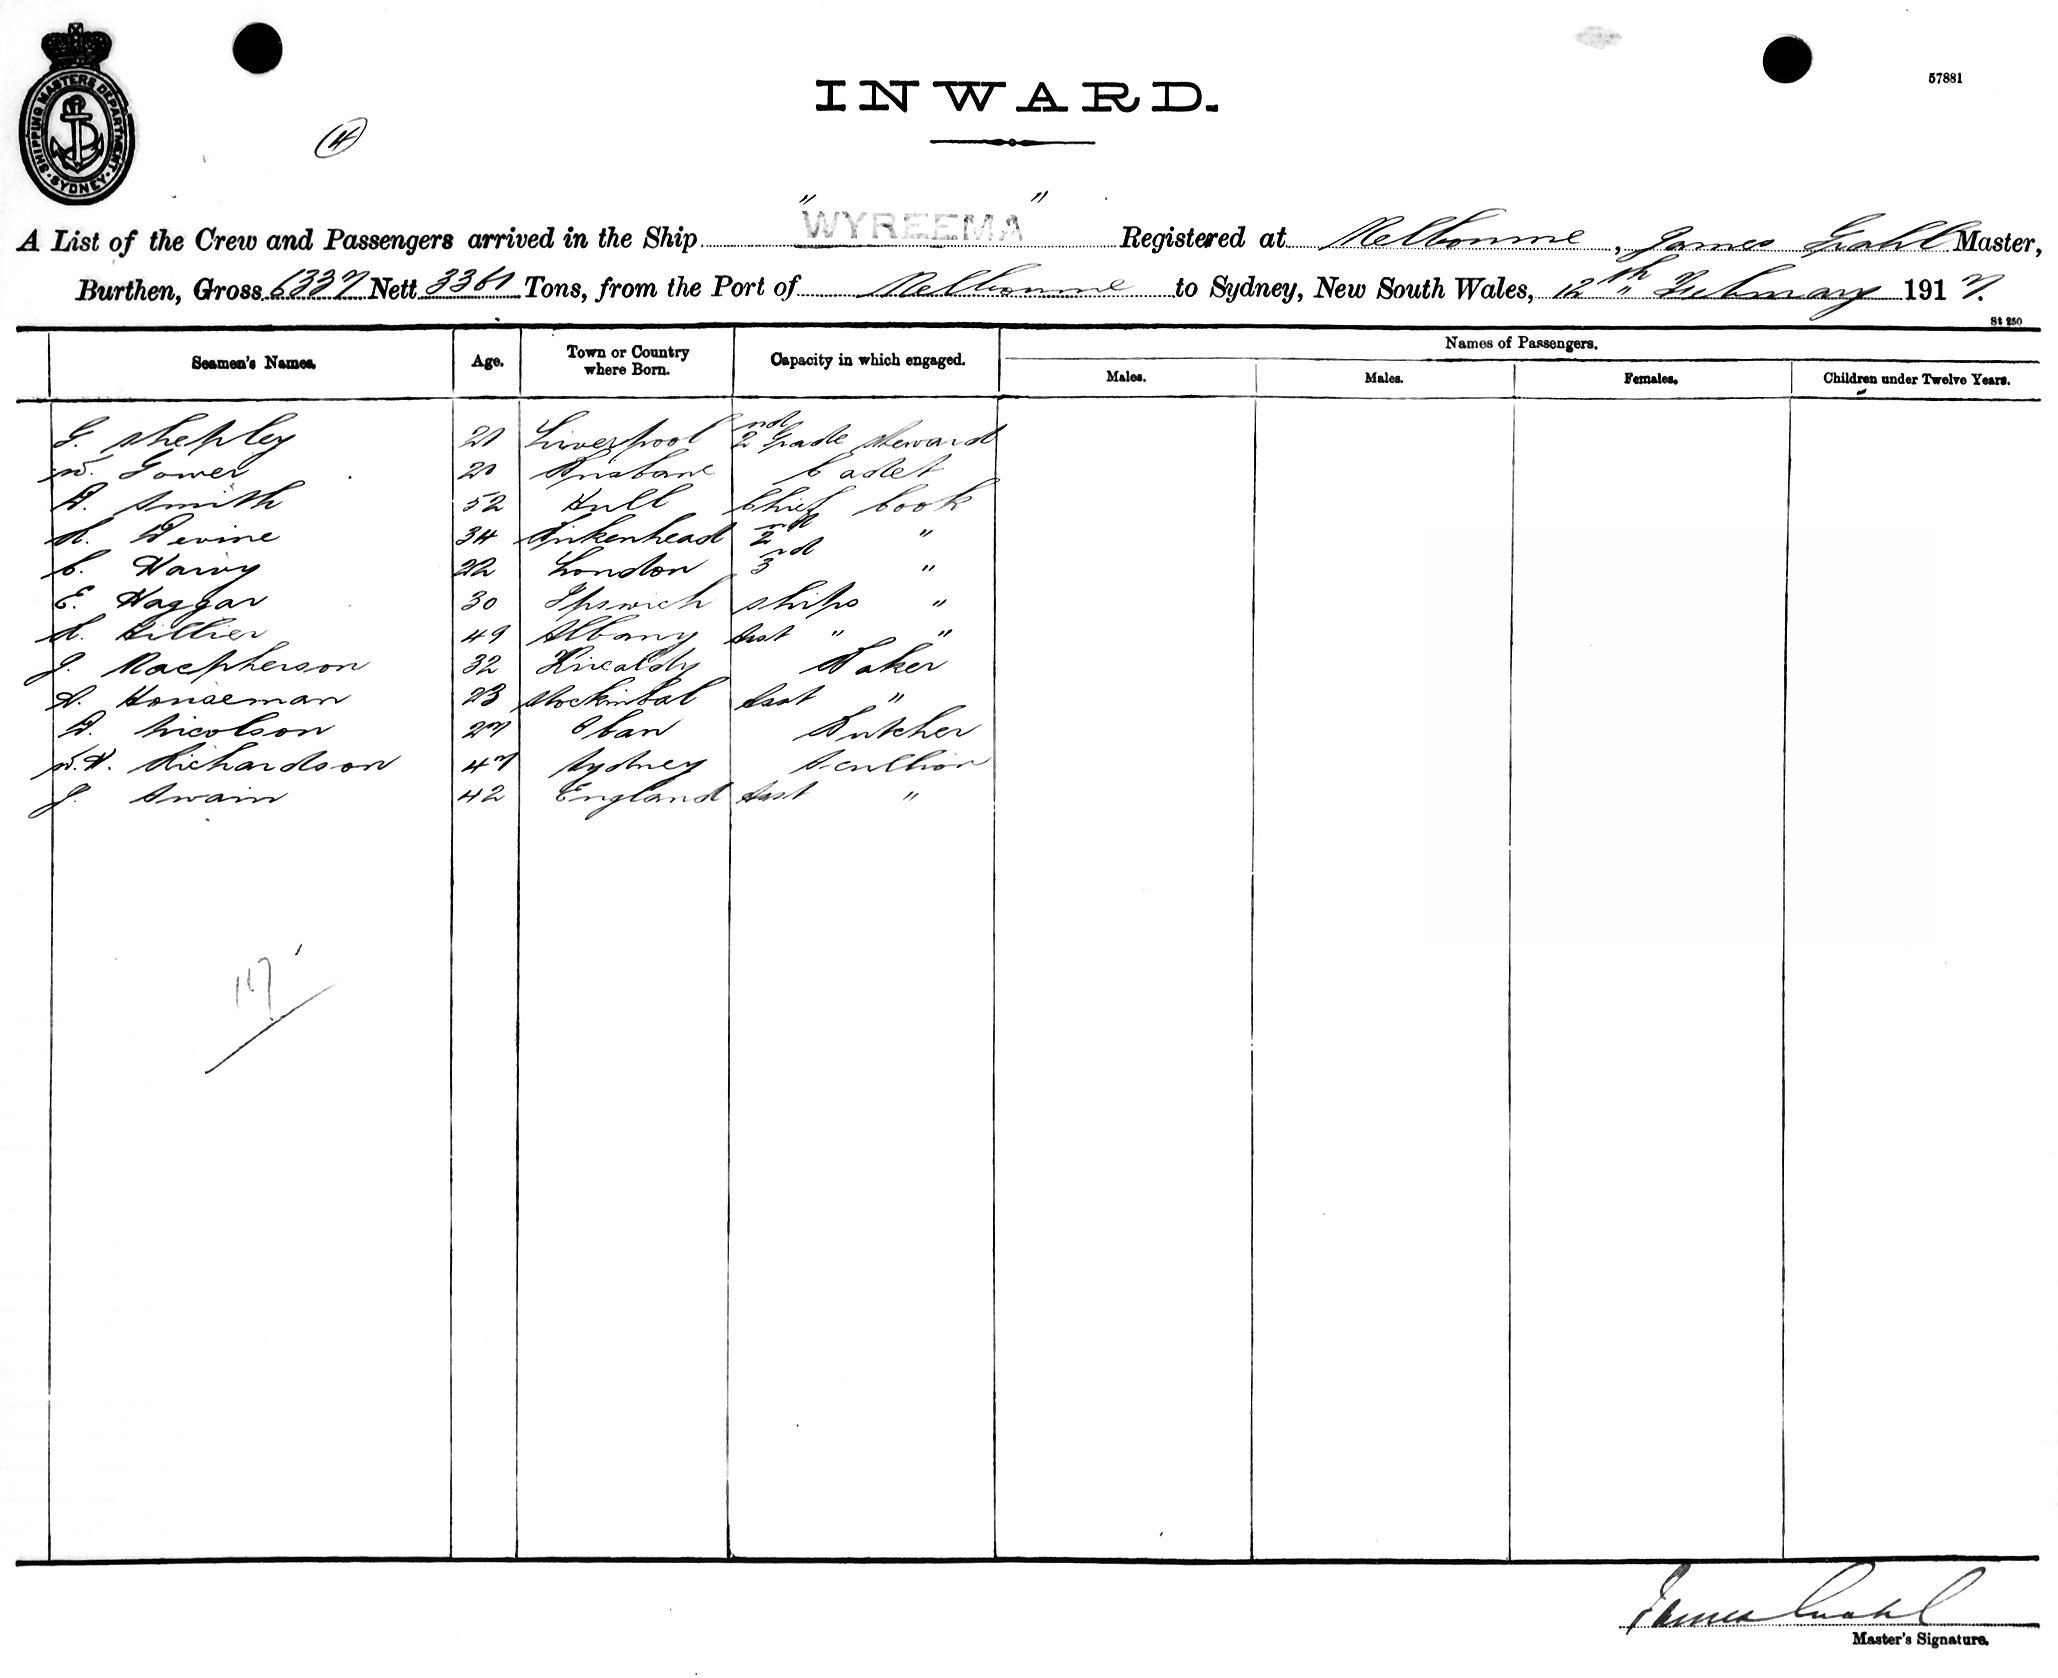 SHIPPING MASTERS DEPARTMENT · SYDNEY ·
57881
INWARD.
A List of the Crew and Passengers arrived in the Ship "WYREEMA" Registered at Melbourne, James Grahl Master,
Burthen, Gross 6337 Nett 3361 Tons, from the Port of Melbourne to Sydney, New South Wales, 12th February 1917.
St 250
Seamen's Names. Age. Town or Country where Born. Capacity in which engaged. Names of Passengers.
Males. Males. Females. Children under Twelve Years.
G. Shepley 21 Liverpool 2nd Grade Steward
W. Gower 20 Brisbane Cadet
D. Smith 52 Hull Chief Cook
A. Devine 34 Birkenhead 2nd "
C. Harvy 22 London 3rd "
E. Haggar 30 Ipswich Ships "
A. Hillier 49 Albany Asst " "
J. Macpherson 32 Kircaldy Baker
A. Houseman 23 Asst "
D. Nicolson 27 Oban Butcher
W.H. Richardson 47 Sydney Scullion
J. Swain 42 England Asst "
117
James Grahl
Master's Signature.